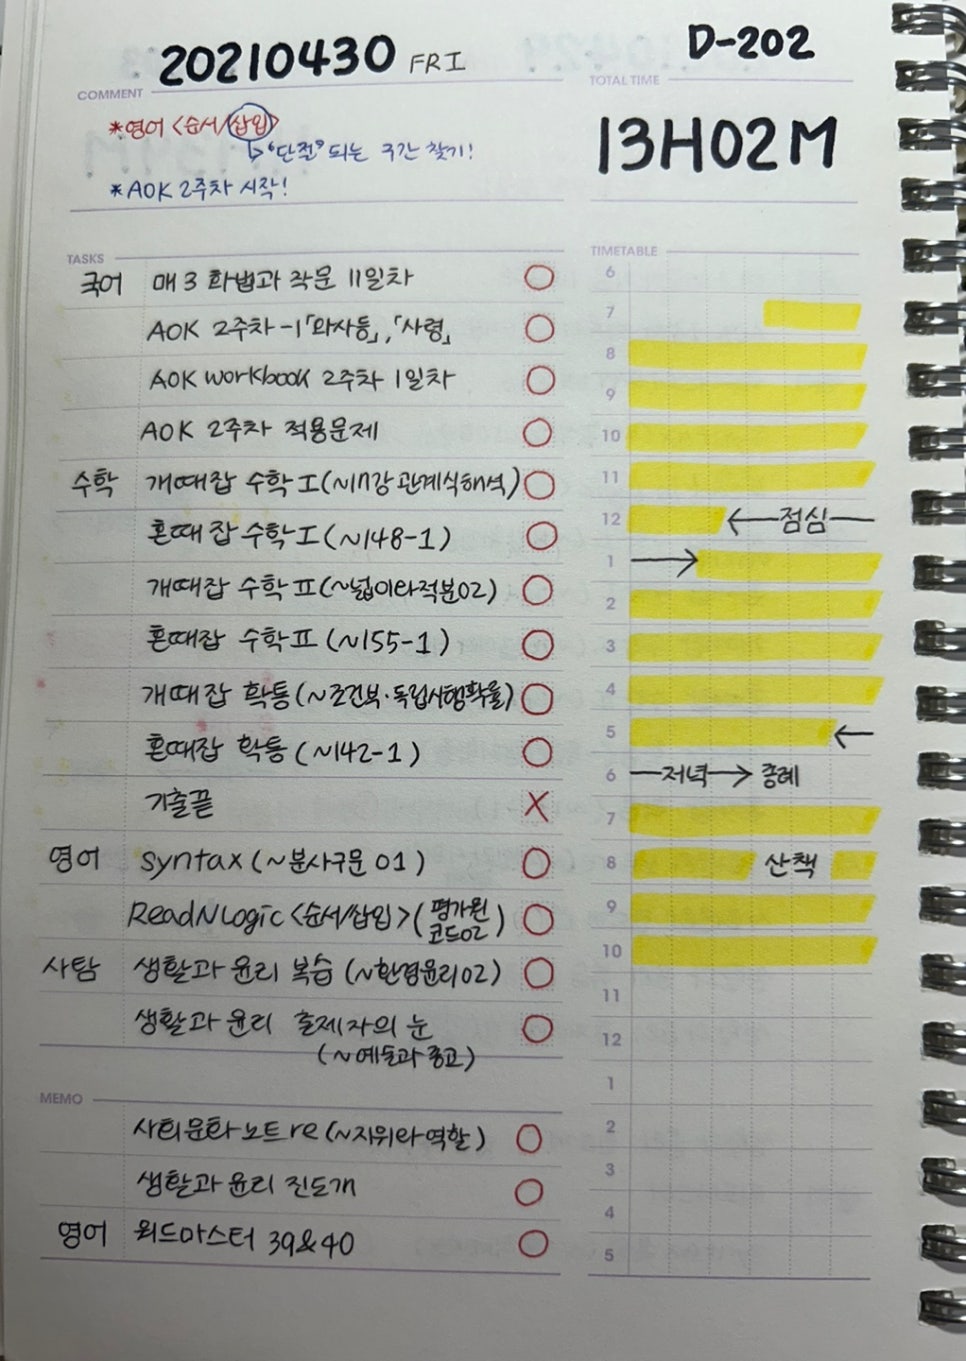 20210430 FRI
D-202
COMMENT
*영어 <순서/삽입>
↳ "단절" 되는 구간 찾기!
*AOK 2주차 시작!
TOTAL TIME
13H02M
TASKS
국어 매3 화법과 작문 11일차 O
AOK 2주차-1 「와사등」, 「사령」 O
AOK workbook 2주차 1일차 O
AOK 2주차 적용문제 O
수학 개때잡 수학I (~17강 관계식해석) O
혼때잡 수학I (~148-1) O
개때잡 수학II (~넓이와적분02) O
혼때잡 수학II (~155-1) O
개때잡 확통 (~조건부·독립시행확률) O
혼때잡 확통 (~142-1) O
기출끝 X
영어 syntax (~분사구문 01) O
ReadNLogic <순서/삽입> (평가원 코드02) O
사탐 생활과 윤리 복습 (~환경윤리02) O
생활과 윤리 출제자의 눈 O
(~예술과 종교)
MEMO
사회문화 노트 re (~지위와 역할) O
생활과 윤리 진도개 O
영어 워드마스터 39&40 O
TIMETABLE
6
7
8
9
10
11
12 ←점심—
1 →
2
3
4
5 ←
6 —저녁→ 종례
7
8 산책
9
10
11
12
1
2
3
4
5